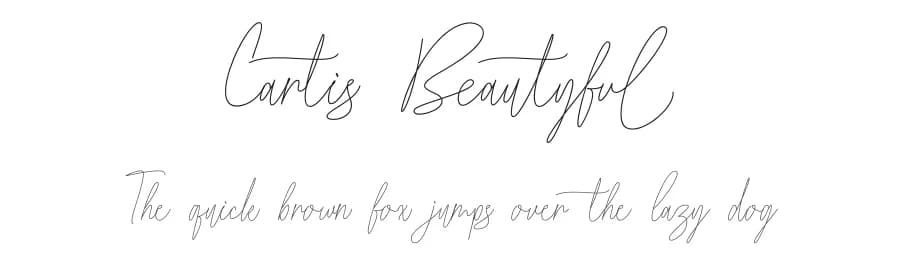 Cartis Beautyful
The quick brown fox jumps over the lazy dog